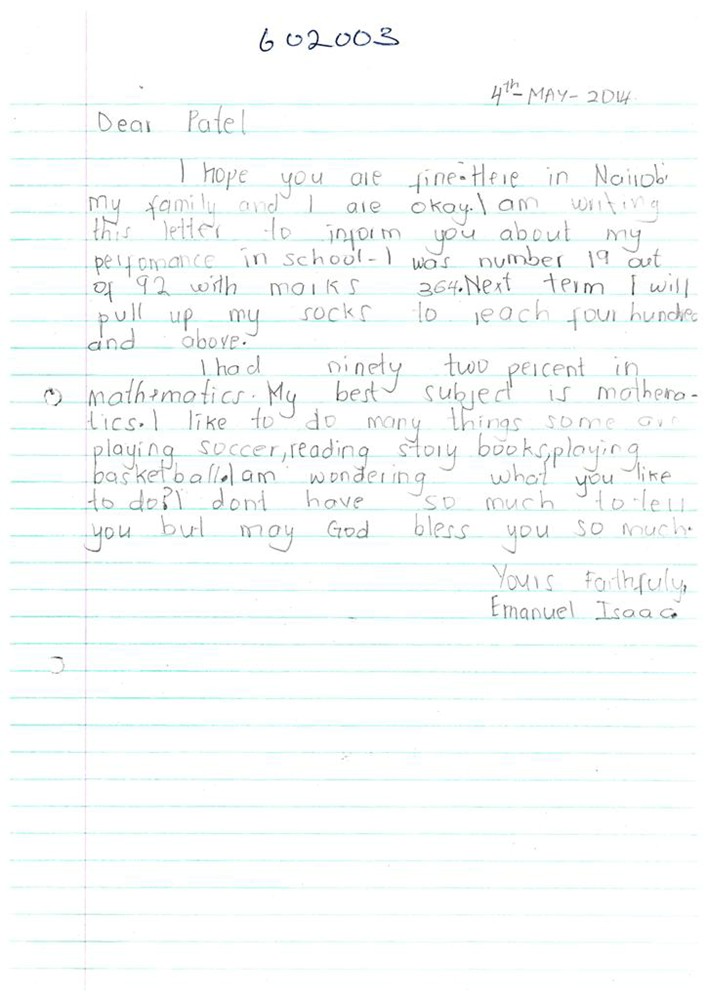 602003
4th-MAY-2014
Dear Patel
I hope you are fine-Here in Nairobi
my family and I are okay.I am writing
this letter to inform you about my
perfomance in school-I was number 19 out
of 92 with marks 364.Next term I will
pull up my socks to reach four hundred
and above.
I had ninety two percent in
mathematics. My best subject is mathema-
tics.I like to do many things some are
playing soccer,reading story books,playing
basketball.I am wondering what you like
to do?I dont have so much to tell
you but may God bless you so much.
Yours Faithfuly,
Emanuel Isaac.